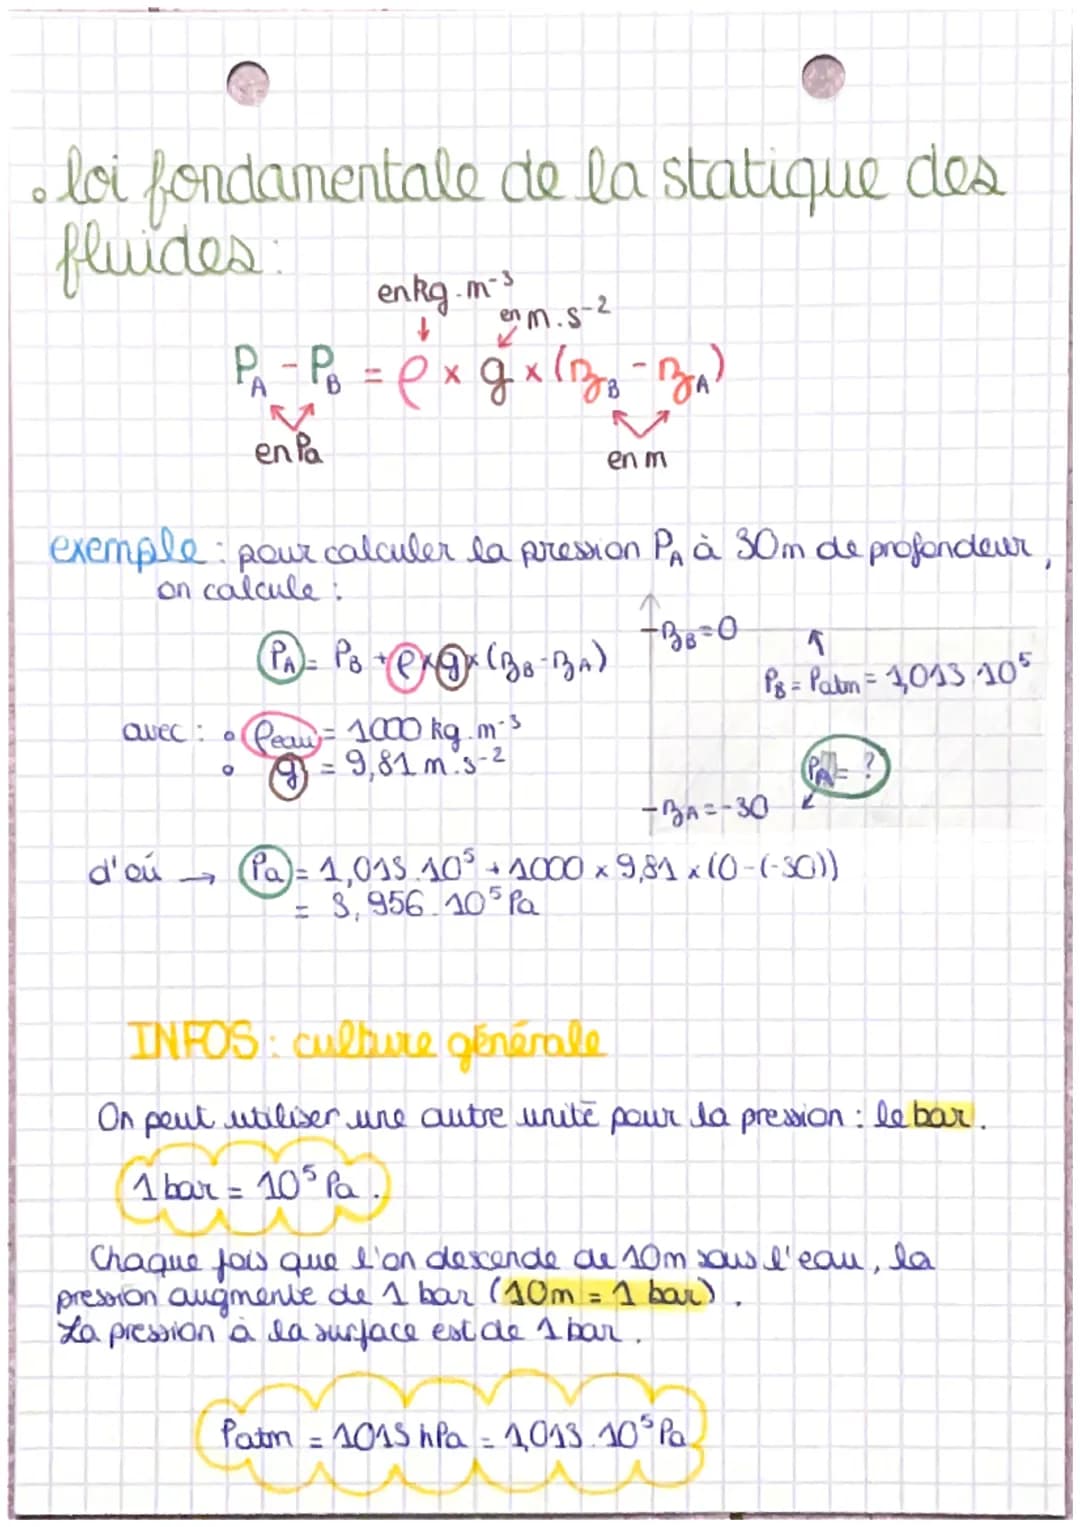 • loi fondamentale de la statique des
fluides :
en kg.m⁻³
en m.s⁻²
P_A - P_B = ρ × g × (z_B - z_A)
en Pa
en m
exemple : pour calculer la pression P_A à 30m de profondeur,
on calcule :
P_A = P_B + ρ × g × (z_B - z_A)
- z_B = 0
P_B = Patm = 1,013 10⁵
avec : • ρeau = 1000 kg.m⁻³
• g = 9,81 m.s⁻²
P_A = ?
- z_A = -30
d'où → Pa = 1,013.10⁵ + 1000 × 9,81 × (0-(-30))
= 3,956.10⁵ Pa
INFOS : culture générale
On peut utiliser une autre unité pour la pression : le bar.
1 bar = 10⁵ Pa.
Chaque fois que l'on descende de 10m sous l'eau, la
pression augmente de 1 bar (10m = 1 bar).
La pression à la surface est de 1 bar.
Patm = 1013 hPa = 1,013.10⁵ Pa